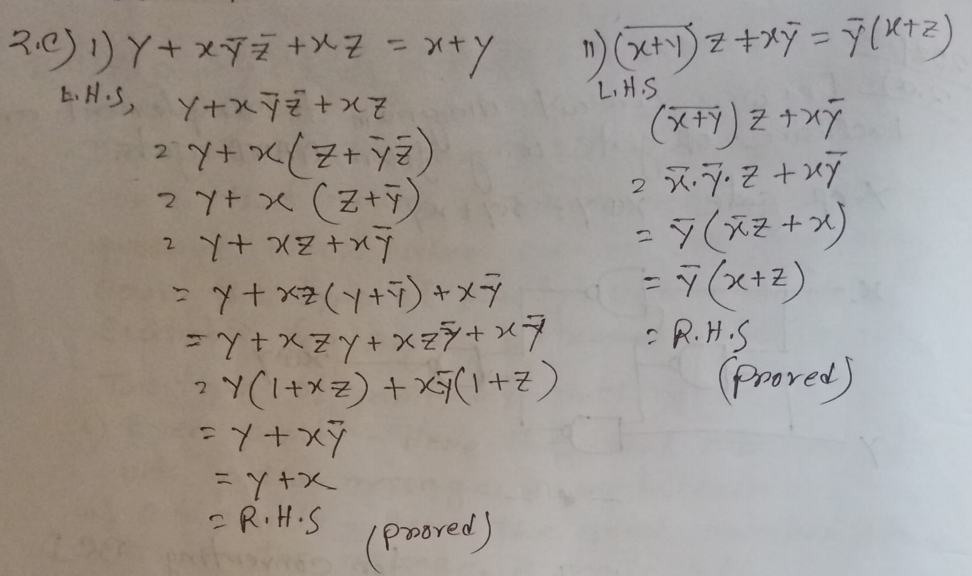 2.c) 1) y + xȳz̄ + xz = x+y
L.H.S, y + xȳz̄ + xz
= y + x(z + ȳz̄)
= y + x (z+ȳ)
= y + xz + xȳ
= y + xz(y+ȳ) + xȳ
= y + xzy + xzȳ + xȳ
= y(1+xz) + xȳ(1+z)
= y + xȳ
= y + x
= R.H.S (proved)
11) (x+y)̅ z + xȳ = ȳ(x+z)
L.H.S
(x+y)̅ z + xȳ
= x̄.ȳ.z + xȳ
= ȳ(x̄z + x)
= ȳ(x+z)
= R.H.S
(proved)